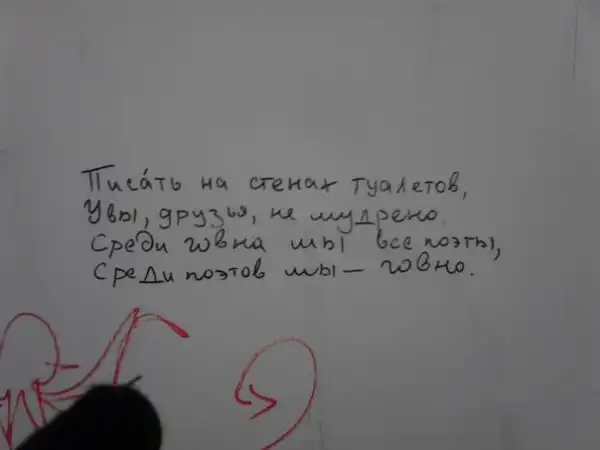 Писа́ть на стенах туалетов,
Увы, друзья, не мудрено.
Среди говна мы все поэты,
Среди поэтов мы — говно.